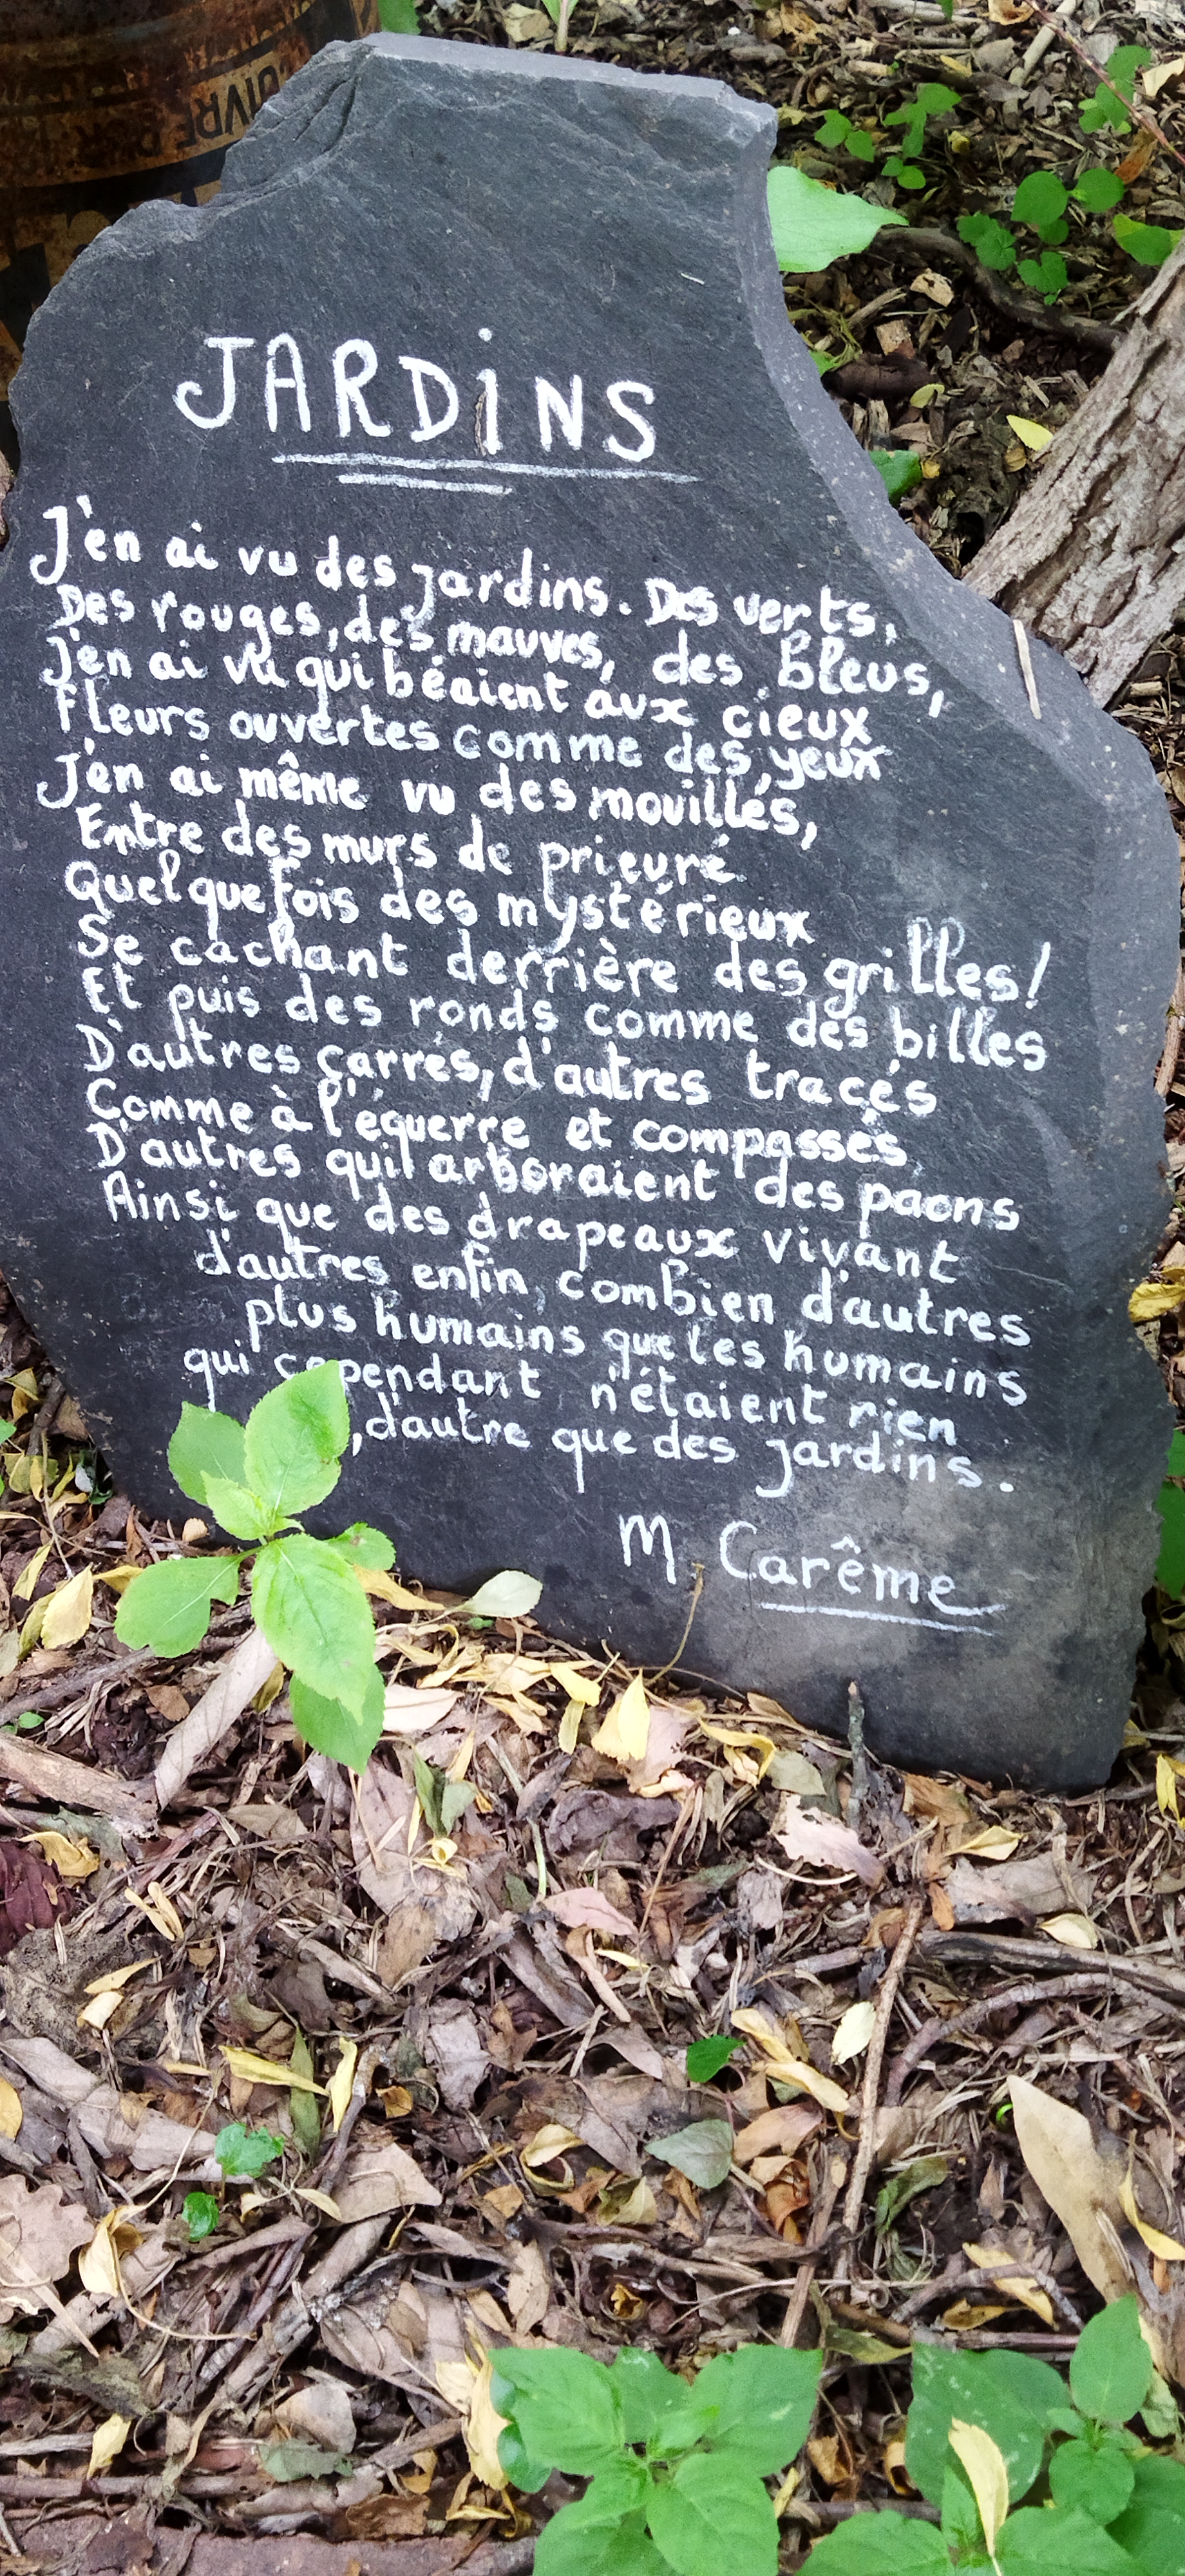 JARDiNS
J'en ai vu des jardins. Des verts,
Des rouges, des mauves, des bleus,
J'en ai vu qui béaient aux cieux
Fleurs ouvertes comme des yeux
J'en ai même vu des mouillés,
Entre des murs de prieuré
Quelquefois des mystérieux
Se cachant derrière des grilles!
Et puis des ronds comme des billes
D'autres carrés, d'autres tracés
Comme à l'équerre et compassés,
D'autres qui arboraient des paons
Ainsi que des drapeaux vivant
d'autres enfin, combien d'autres
plus humains que les humains
qui cependant n'étaient rien
,d'autre que des jardins.
M. Carême